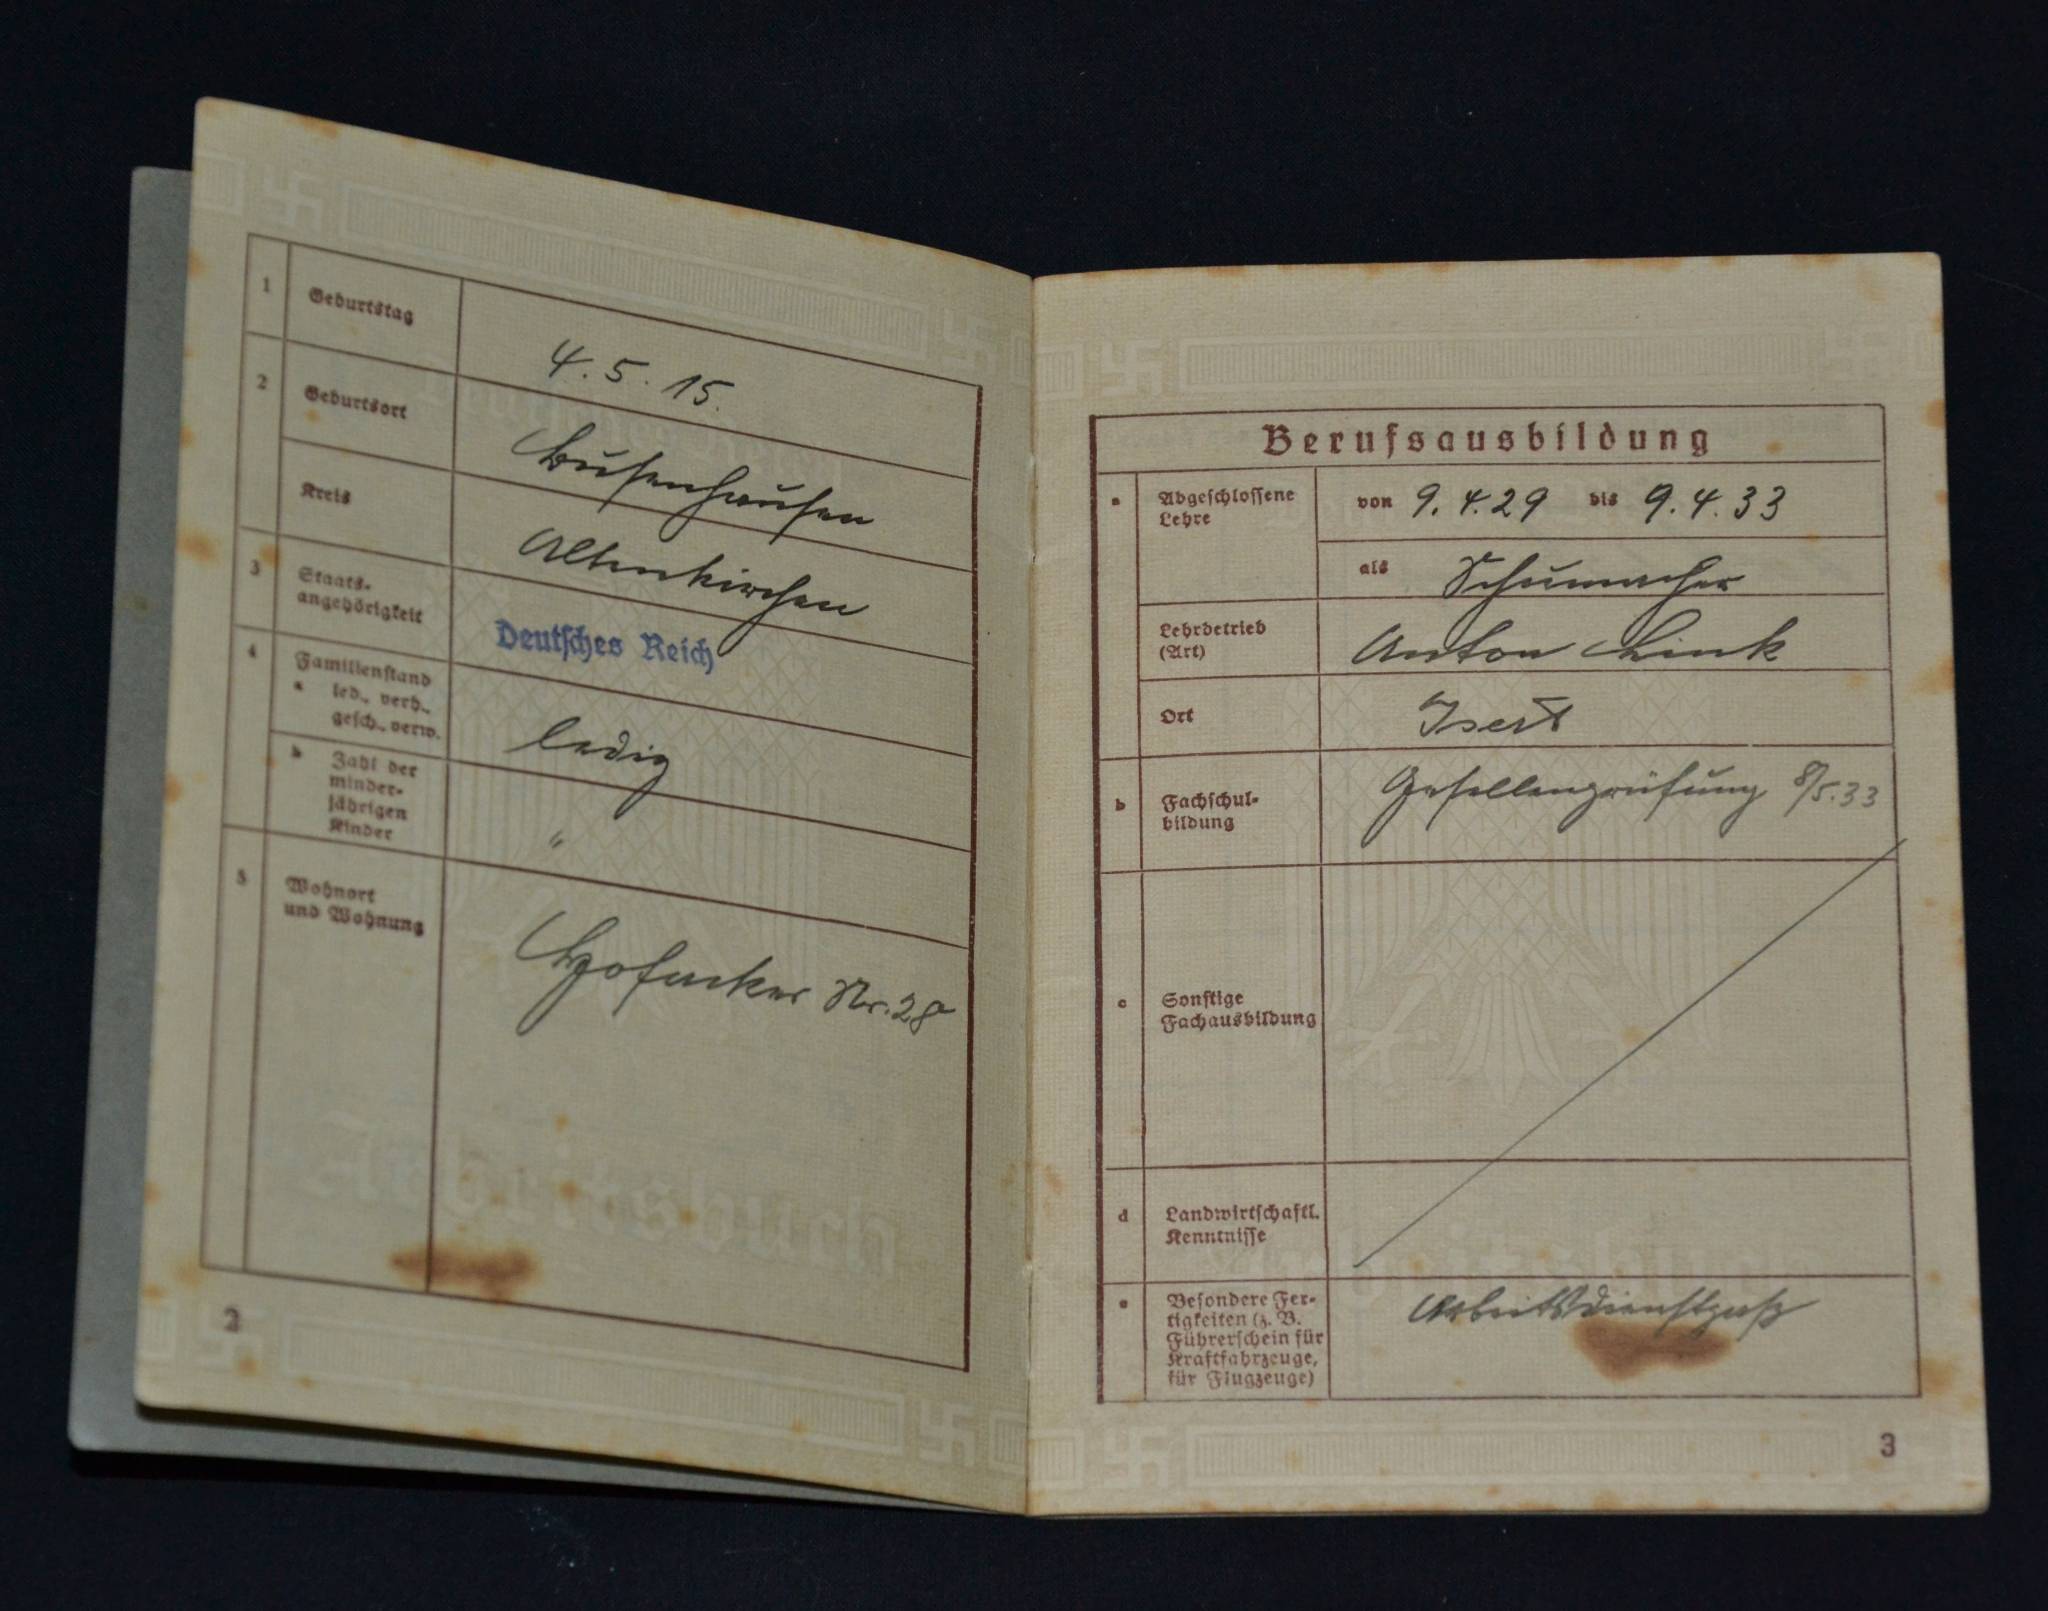 1 Geburtstag 4. 5. 15.
2 Geburtsort Busenhausen
Kreis Altenkirchen
3 Staats-
angehörigkeit Deutsches Reich
4 Familienstand
a led., verh.,
gesch., verw. ledig
b Zahl der
minder-
jährigen
Kinder "
5 Wohnort
und Wohnung Nr. 28
Arbeitsbuch
2
Berufsausbildung
a Abgeschlossene
Lehre von 9. 4. 29 bis 9. 4. 33
als Schumacher
Lehrbetrieb
(Art) Anton Link
Ort Isert
b Fachschul-
bildung Gesellenprüfung 8/5. 33
c Sonstige
Fachausbildung
d Landwirtschaftl.
Kenntnisse
e Besondere Fer-
tigkeiten (z. B.
Führerschein für
Kraftfahrzeuge,
für Flugzeuge) Arbeitsdienstpaß
Arbeitsbuch
3